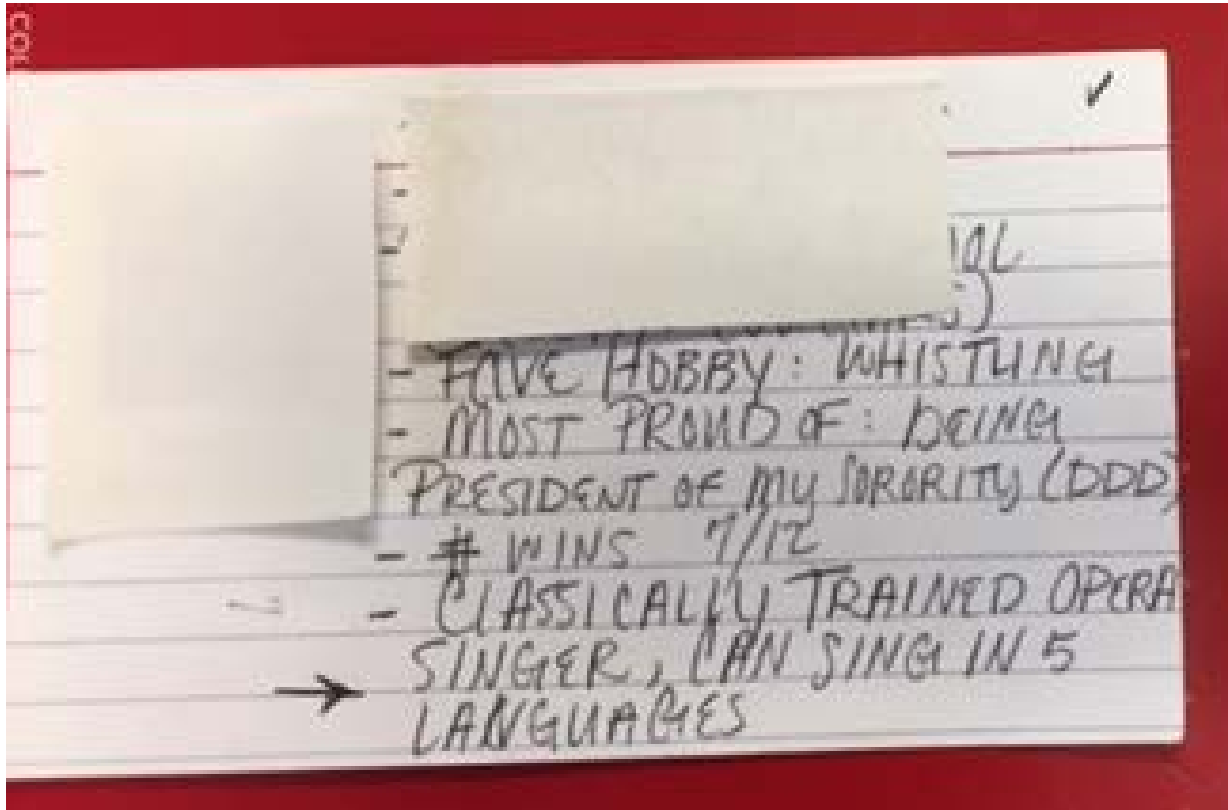 COL
- FAVE HOBBY: WHISTLING
- MOST PROUD OF: BEING
PRESIDENT OF MY SORORITY (DDD)
- # WINS 7/12
- CLASSICALLY TRAINED OPERA
SINGER, CAN SING IN 5
LANGUAGES